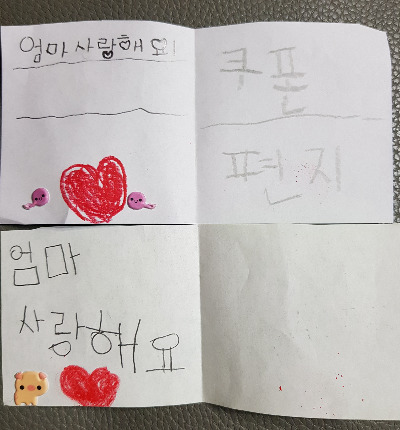 엄마 사랑해요!
쿠폰
편지
엄마
사랑해요